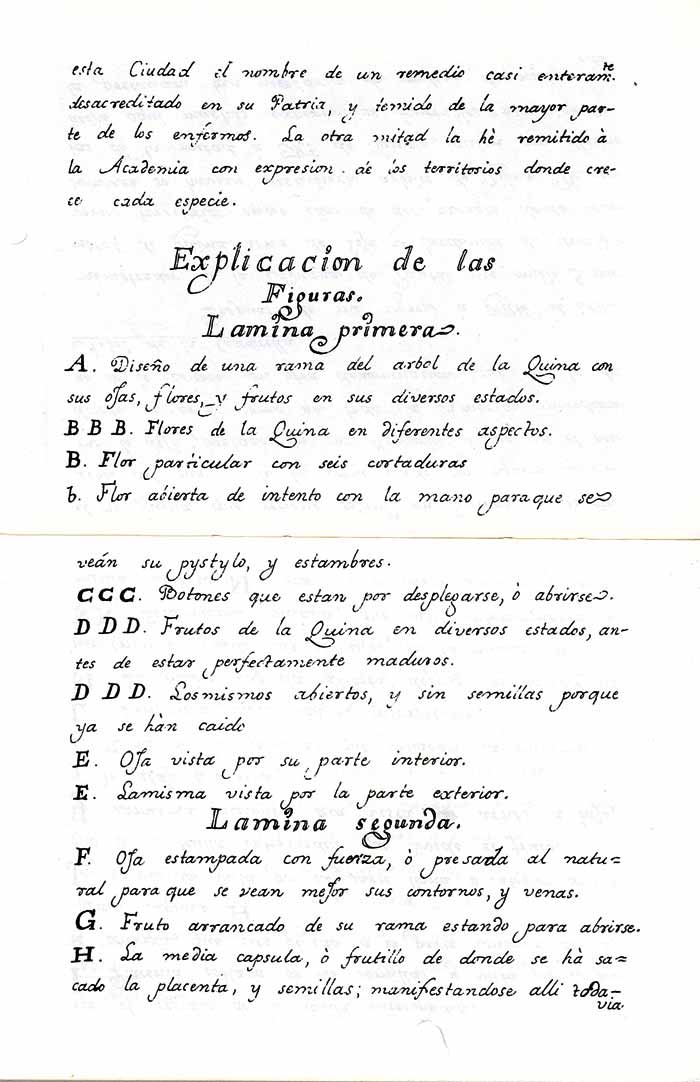 esta Ciudad el nombre de un remedio casi enteram.te
desacreditado en su Patria, y temido de la mayor par-
te de los enfermos. La otra mitad la hè remitido à
la Academia con expresion de los territorios donde cre-
ce cada especie.
Explicacion de las
Figuras.
Lamina primera.
A. Diseño de una rama del arbol de la Quina con
sus ojas, flores, y frutos en sus diversos estados.
B B B. Flores de la Quina en diferentes aspectos.
B. Flor particular con seis cortaduras
b. Flor abierta de intento con la mano paraque se
veán su pystylo, y estambres.
C C C. Botones que estan por desplegarse, ò abrirse.
D D D. Frutos de la Quina en diversos estados, an-
tes de estar perfectamente maduros.
D D D. Losmismos abiertos, y sin semillas porque
ya se hàn caido
E. Oja vista por su parte interior.
E. Lamisma vista por la parte exterior.
Lamina segunda.
F. Oja estampada con fuerza, ò presada al natu=
ral para que se vean mejor sus contornos, y venas.
G. Fruto arrancado de su rama estando para abrirse.
H. La media capsula, ò frutillo de donde se hà sa=
cado la placenta, y semillas; manifestandose alli toda-
via